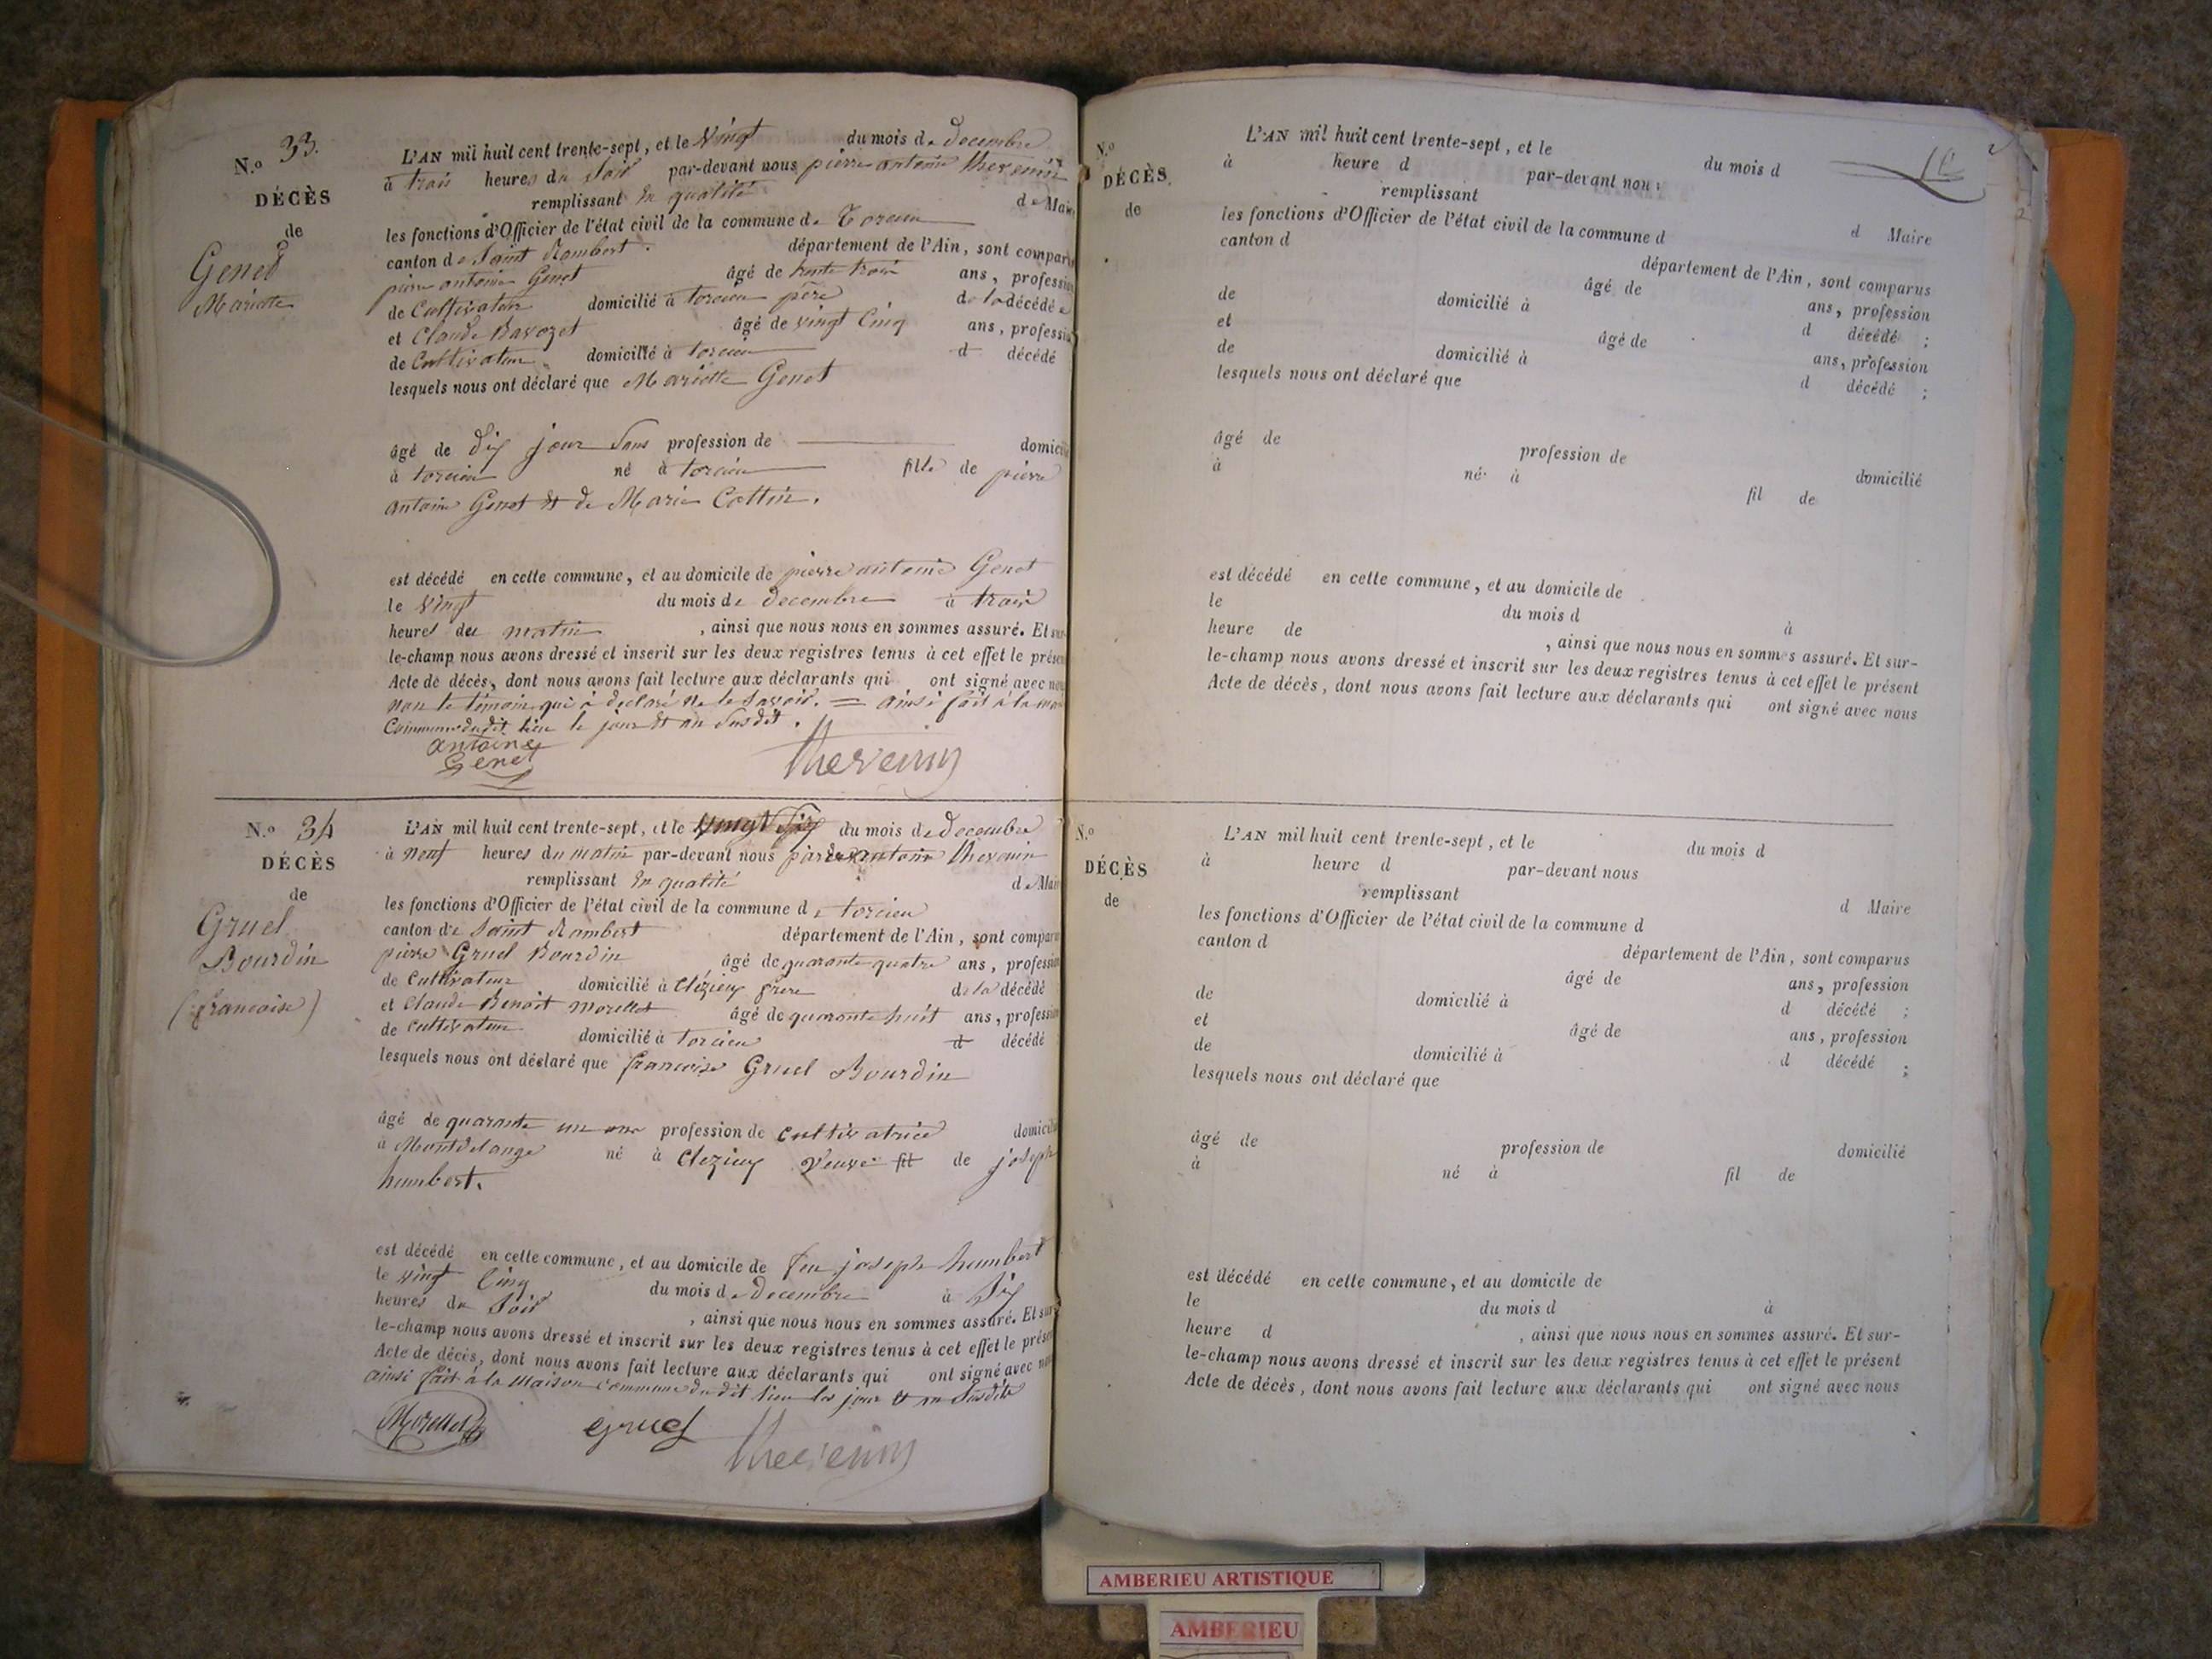 N.o 33.
DÉCÈS
de
Genet
Mariette
L'AN mil huit cent trente-sept, et le Vingt du mois de decembre
à trois heures du soir par-devant nous pierre antoine thevenin
remplissant En qualité de Mair
les fonctions d'Officier de l'état civil de la commune de Torcieu
canton de Saint Rambert département de l'Ain, sont comparus
pierre antoine Genet âgé de trente trois ans, profession
de Cultivateur domicilié à torcieu père de la décédée
et Claude Bavozet âgé de vingt Cinq ans, profession
de Cultivateur domicilié à torcieu d décédé
lesquels nous ont déclaré que Mariette Genet
âgé de dix jour Sans profession de domicilié
à torcieu né à torcieu fille de pierre
antoine Genet et de Marie Cottin.
est décédé en cette commune, et au domicile de pierre antoine Genet
le Vingt du mois de decembre à trois
heures du matin , ainsi que nous nous en sommes assuré. Et sur-
le-champ nous avons dressé et inscrit sur les deux registres tenus à cet effet le présen
Acte de décès, dont nous avons fait lecture aux déclarants qui ont signé avec nou
non le témoin qui à declaré ne le savoir. = ainsi fait à la
Commune dudit lieu le jour et an susdit.
antoine
Genet
thevenin
N.o 34
DÉCÈS
de
Gruel
Bourdin
(françoise)
L'AN mil huit cent trente-sept, et le Vingt Six du mois de decembre
à neuf heures du matin par-devant nous antoine thevenin
remplissant En qualité de Mair
les fonctions d'Officier de l'état civil de la commune de torcieu
canton de Saint Rambert département de l'Ain, sont comparu
pierre Gruel Bourdin âgé de quarante quatre ans, profession
de Cultivateur domicilié à Clézieux frere de la décédé
et Claude Benoit Morellet âgé de quarante huit ans, profession
de Cultivateur domicilié à torcieu d décédé
lesquels nous ont déclaré que françoise Gruel Bourdin
âgé de quarante un ans profession de Cultivatrice domicilié
à Montdelange né à Clezieux Veuve fil de joseph
humbert.
est décédé en cette commune, et au domicile de feu joseph humbert
le vingt Cinq du mois de Decembre à Six
heures du Soir , ainsi que nous nous en sommes assuré. Et sur
le-champ nous avons dressé et inscrit sur les deux registres tenus à cet effet le présen
Acte de décès, dont nous avons fait lecture aux déclarants qui ont signé avec nou
ainsi fait à la Maison commune du dit lieu les jour et an susdits
Morellet
Gruel
thevenin
N.o
DÉCÈS
de
L'AN mil huit cent trente-sept, et le du mois d
à heure d par-devant nous
remplissant d Maire
les fonctions d'Officier de l'état civil de la commune d
canton d département de l'Ain, sont comparus
âgé de ans, profession
de domicilié à d décédé ;
et âgé de ans, profession
de domicilié à d décédé ;
lesquels nous ont déclaré que
âgé de profession de domicilié
à né à fil de
est décédé en cette commune, et au domicile de
le du mois d à
heure de , ainsi que nous nous en sommes assuré. Et sur-
le-champ nous avons dressé et inscrit sur les deux registres tenus à cet effet le présent
Acte de décès, dont nous avons fait lecture aux déclarants qui ont signé avec nous
N.o
DÉCÈS
de
L'AN mil huit cent trente-sept, et le du mois d
à heure d par-devant nous
remplissant d Maire
les fonctions d'Officier de l'état civil de la commune d
canton d département de l'Ain, sont comparus
âgé de ans, profession
de domicilié à d décédé ;
et âgé de ans, profession
de domicilié à d décédé ;
lesquels nous ont déclaré que
âgé de profession de domicilié
à né à fil de
est décédé en cette commune, et au domicile de
le du mois d à
heure d , ainsi que nous nous en sommes assuré. Et sur-
le-champ nous avons dressé et inscrit sur les deux registres tenus à cet effet le présent
Acte de décès, dont nous avons fait lecture aux déclarants qui ont signé avec nous
AMBERIEU ARTISTIQUE
AMBERIEU